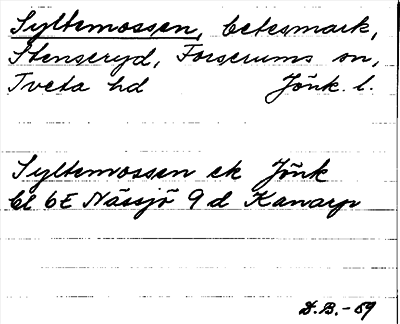 Syltemossen, betesmark,
Stenseryd, Forserums sn,
Tveta hd Jönk. l.
Syltemossen ek Jönk
bl 6E Nässjö 9 d Kanarp
D.B.-69